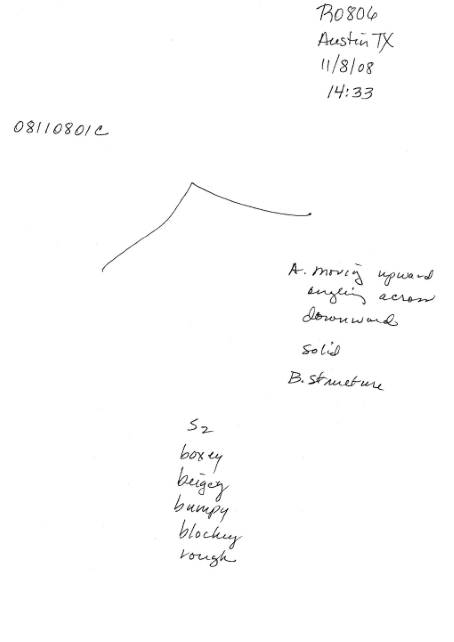 R0806
Austin TX
11/8/08
14:33
08110801C
A. moving upward
angling across
downward
solid
B. structure
S2
boxey
beigey
bumpy
blockey
rough